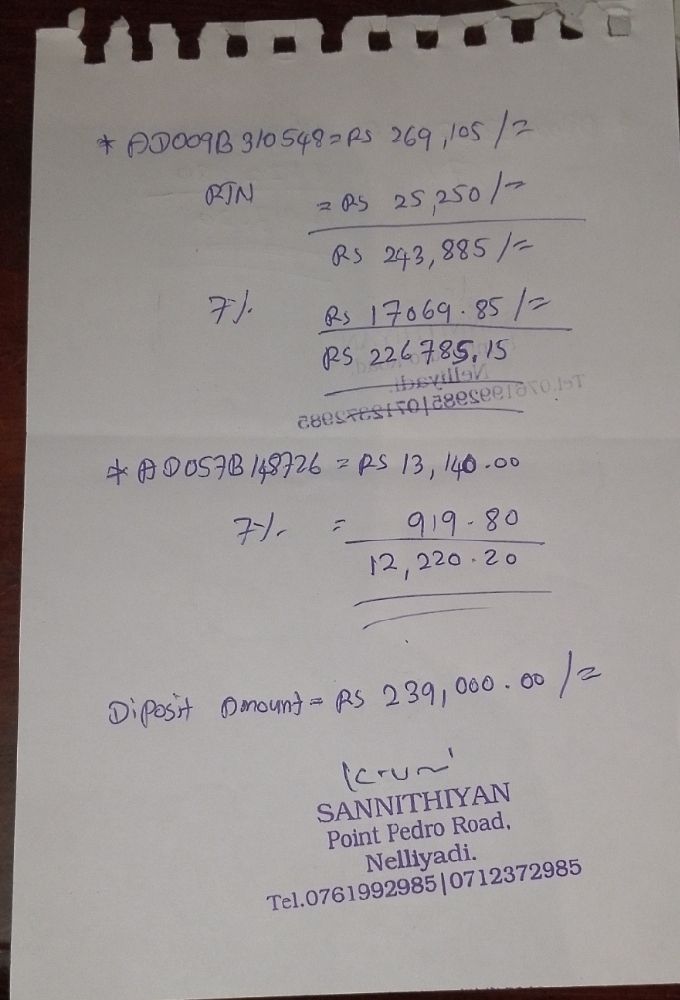 * AD009B310548 = RS 269,105/=
RTN = RS 25,250/=
RS 243,885/=
7% RS 17069.85/=
RS 226785.15
Nelliyadi.
Tel.0761992985|0712372985
* AD057B148726 = RS 13,140.00
7% = 919.80
12,220.20
Diposit Amount = RS 239,000.00/=
SANNITHIYAN
Point Pedro Road,
Nelliyadi.
Tel.0761992985|0712372985